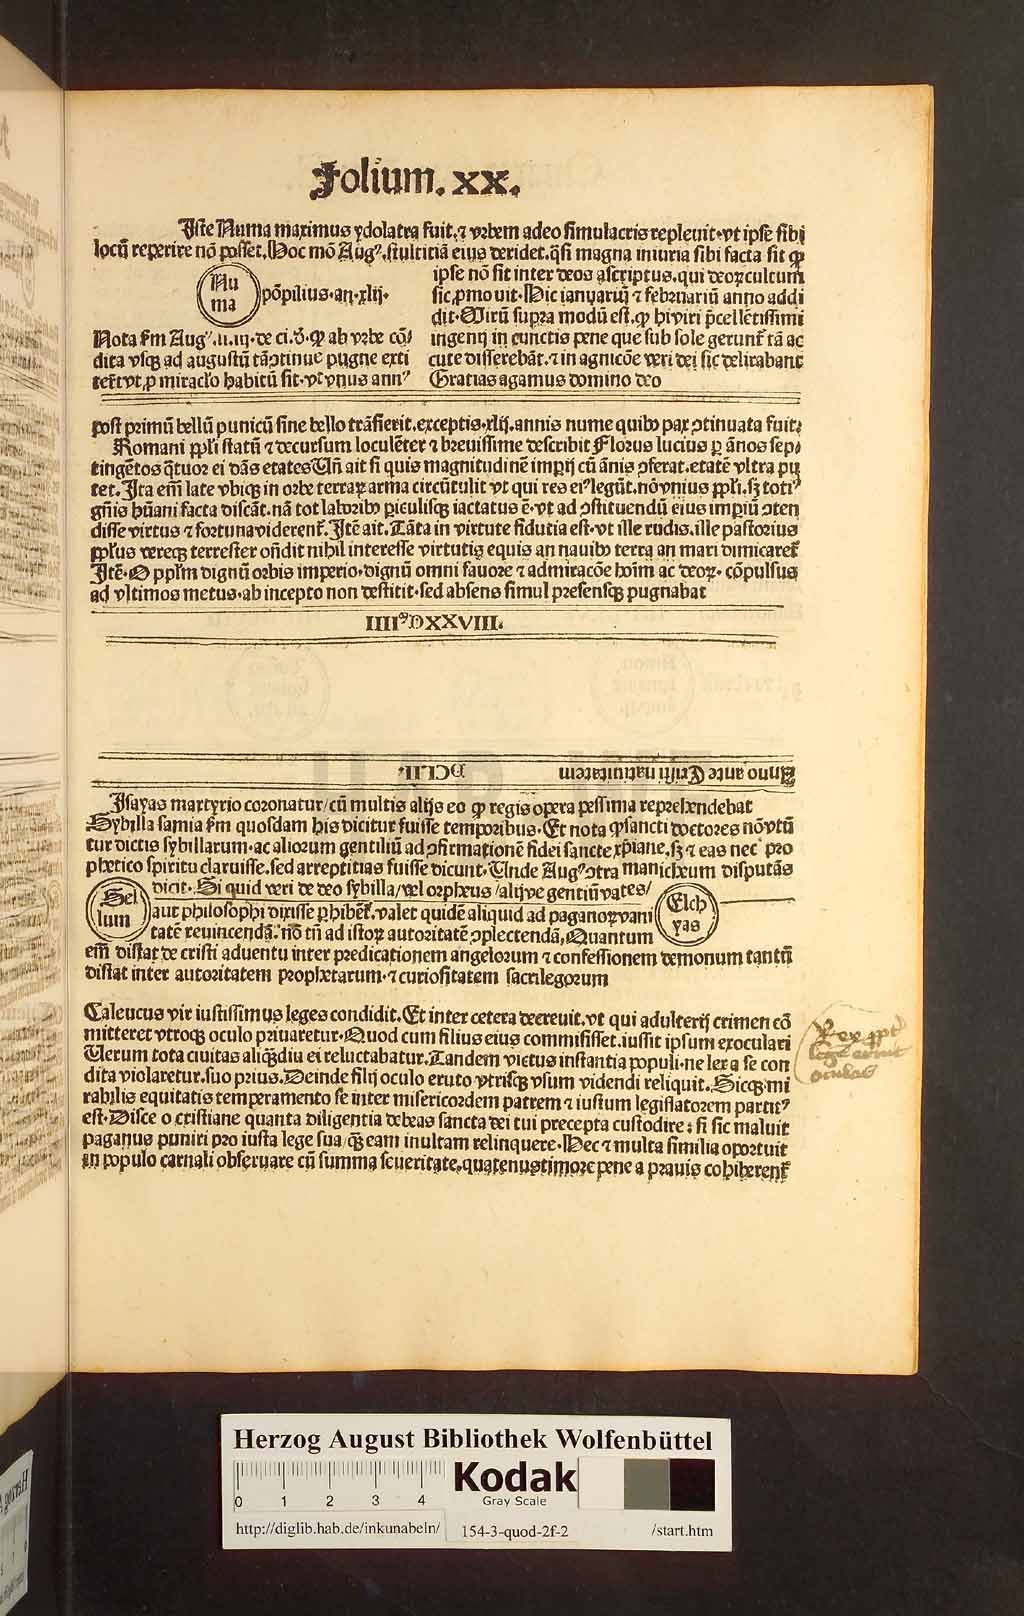 Folium. XX.
Iste Numa maximus ydolatra fuit. ⁊ vrbem adeo simulacris repleuit. vt ipse sibi
locū reperire nō posset. Hoc mō Augꝰ. stulticiā eius deridet. q̄si magna iniuria sibi facta sit ꝙ
Nu
ma
pōpilius. an. xlij.
Nota ẜm Augꝰ. li. iij. de ci. d. ꝙ ab vrbe cō⸗
dita vsqꝫ ad augustū tā ꝯtinue pugne exti
ter̄t vt ꝓ miraclo habitū sit. vt vnus annꝰ
ipse nō sit inter deos ascriptus. qui deoꝝ cultum
sic ꝓmouit. Hic ianuariū ⁊ februariū anno addi
dit. Mirū supra modū est. ꝙ hi viri p̄cellētissimi
ingenij in cunctis pene que sub sole gerunt̄ tā ac
cute disserebāt. ⁊ in agnicōe veri dei sic delirabant
Gratias agamus domino deo
post primū bellū punicū sine bello trāsierit. exceptis. xlij. annis nume quibꝰ pax ꝯtinuata fuit⸗
Romani ppl̄i statū ⁊ decursum loculēter ⁊ breuissime describit Florus lucius ꝑ ānos sep⸗
tingētos q̄tuor ei dās etates Vn̄ ait si quis magnitudinē imperij cū ānis ꝯferat. etatē vltra pu
tet. Ita em̄ late vbiqꝫ in orbe terraꝝ arma circūtulit vt qui res eiꝰ legūt. nō vnius ppl̄i. sꝫ totiꝰ
gn̄is hūani facta discāt. nā tot laboribꝰ ꝑiculisqꝫ iactatus ē. vt ad ꝯstituendū eius imperiū ꝯten
disse virtus ⁊ fortuna viderent̄. Itē ait. Tāta in virtute fidutia est. vt ille rudis. ille pastorius
ppl̄us vereqꝫ terrester on̄dit nihil interesse virtutis equis an nauibꝰ terra an mari dimicaret̄
Itē. O ppl̄m dignū orbis imperio. dignū omni fauore ⁊ admiracōe hoīm ac deoꝝ. cōpulsus
ad vltimos metus. ab incepto non destitit. sed absens simul presensqꝫ pugnabat
IIIIᵐDXXVIII.
Anno ante Cristi natiuitatem DCLII.
Isayas martyrio coronatur / cū multis alijs eo ꝙ regis opera pessima reprehendebat
Sybilla samia ẜm quosdam his dicitur fuisse temporibus. Et nota ꝙ sancti doctores nō vtū
tur dictis sybillarum. ac aliorum gentiliū ad ꝯfirmationē fidei sancte xp̄iane. sꝫ ⁊ eas necꝰ pro
phetico spiritu claruisse. sed arreptitias fuisse dicunt. Unde Augꝰ ꝯtra manicheum disputās
dicit. Si quid veri de deo sybilla / vel orpheus / alijve gentiū vates /
Sel
lum
aut philosophi dixisse ꝑhibēt̄. valet quidē aliquid ad paganoꝝ vani
tatē reuincendā. nō tn̄ ad istoꝝ autoritatē ꝯplectendā. Quantum
Elch
yas
em̄ distat de cristi aduentu inter predicationem angelorum ⁊ confessionem demonum tantū
distat inter autoritatem prophetarum. ⁊ curiositatem sacrilegorum
Caleucus vir iustissimus leges condidit. Et inter cetera decreuit. vt qui adulterij crimen cō
mitteret vtroqꝫ oculo priuaretur. Quod cum filius eius commisisset. iussit ipsum exoculari
Verum tota ciuitas aliqꝫdiu ei reluctabatur. Tandem victus instantia populi. ne lex a se con
dita violaretur. suo prius. Deinde filij oculo eruto vtrisqꝫ vsum videndi reliquit. Sicqꝫ mi
rabilis equitatis temperamento se inter misericordem patrem ⁊ iustum legislatorem partitꝰ
est. Disce o cristiane quanta diligentia debeas sancta dei tui precepta custodire: si sic maluit
paganus puniri pro iusta lege sua / qꝫ eam inultam relinquere. Hec ⁊ multa similia oportuit
in populo carnali obseruare cū summa seueritate. quatenus timore pene a prauis cohiberent̄
Rex
oculos
Herzog August Bibliothek Wolfenbüttel
0 1 2 3 4
Kodak
Gray Scale
http://diglib.hab.de/inkunabeln/ 154-3-quod-2f-2 /start.htm